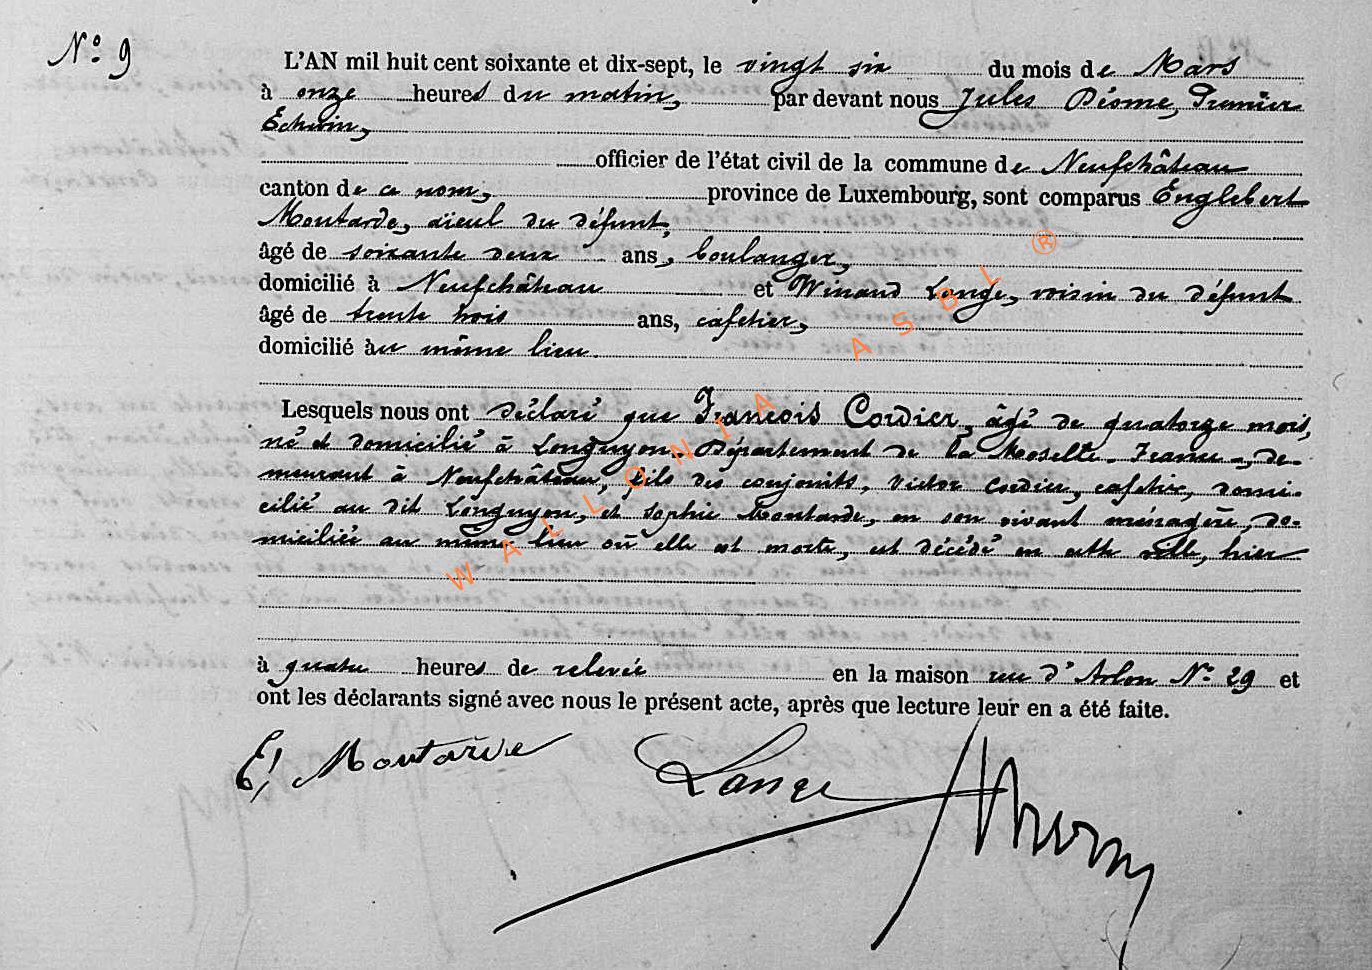 N° 9
L'AN mil huit cent soixante et dix-sept, le vingt six du mois de Mars
à onze heures du matin, par devant nous Jules Déome, Premier
Echevin,
officier de l'état civil de la commune de Neufchâteau
canton de ce nom, province de Luxembourg, sont comparus Englebert
Moutarde, aïeul du défunt,
âgé de soixante deux ans, boulanger,
domicilié à Neufchâteau et Winand Lange, voisin du défunt
âgé de trente trois ans, cafetier,
domicilié au même lieu.
Lesquels nous ont déclaré que François Cordier, âgé de quatorze mois,
né et domicilié à Longuyon, Département de la Moselle - France -, de-
meurant à Neufchâteau, fils des conjoints, Victor Cordier, cafetier, domi-
cilié au dit Longuyon, et Sophie Moutarde, en son vivant ménagère, do-
miciliée au même lieu où elle est morte, est décédé en cette ville, hier
à quatre heures de relevée en la maison rue d'Arlon N° 29 et
ont les déclarants signé avec nous le présent acte, après que lecture leur en a été faite.
E, Moutarde Lange
WALLONIA ASBL ®